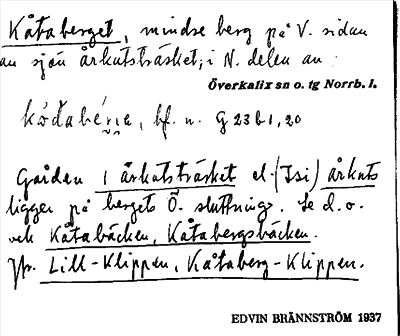 Kåtaberget, mindre berg på V. sidan
av sjön Årkatsträsket, i N. delen av
Överkalix sn o. tg Norrb. l.
bf. n. G 23 b 1, 20
Gården i Årkatsträsket el. (Isi) Årkats
ligger på bergets Ö. sluttning. Se d. o.
och Kåtabäcken, Kåtabergsbäcken.
Jfr. Lill-Klippen, Kåtaberg-Klippen.
EDVIN BRÄNNSTRÖM 1937